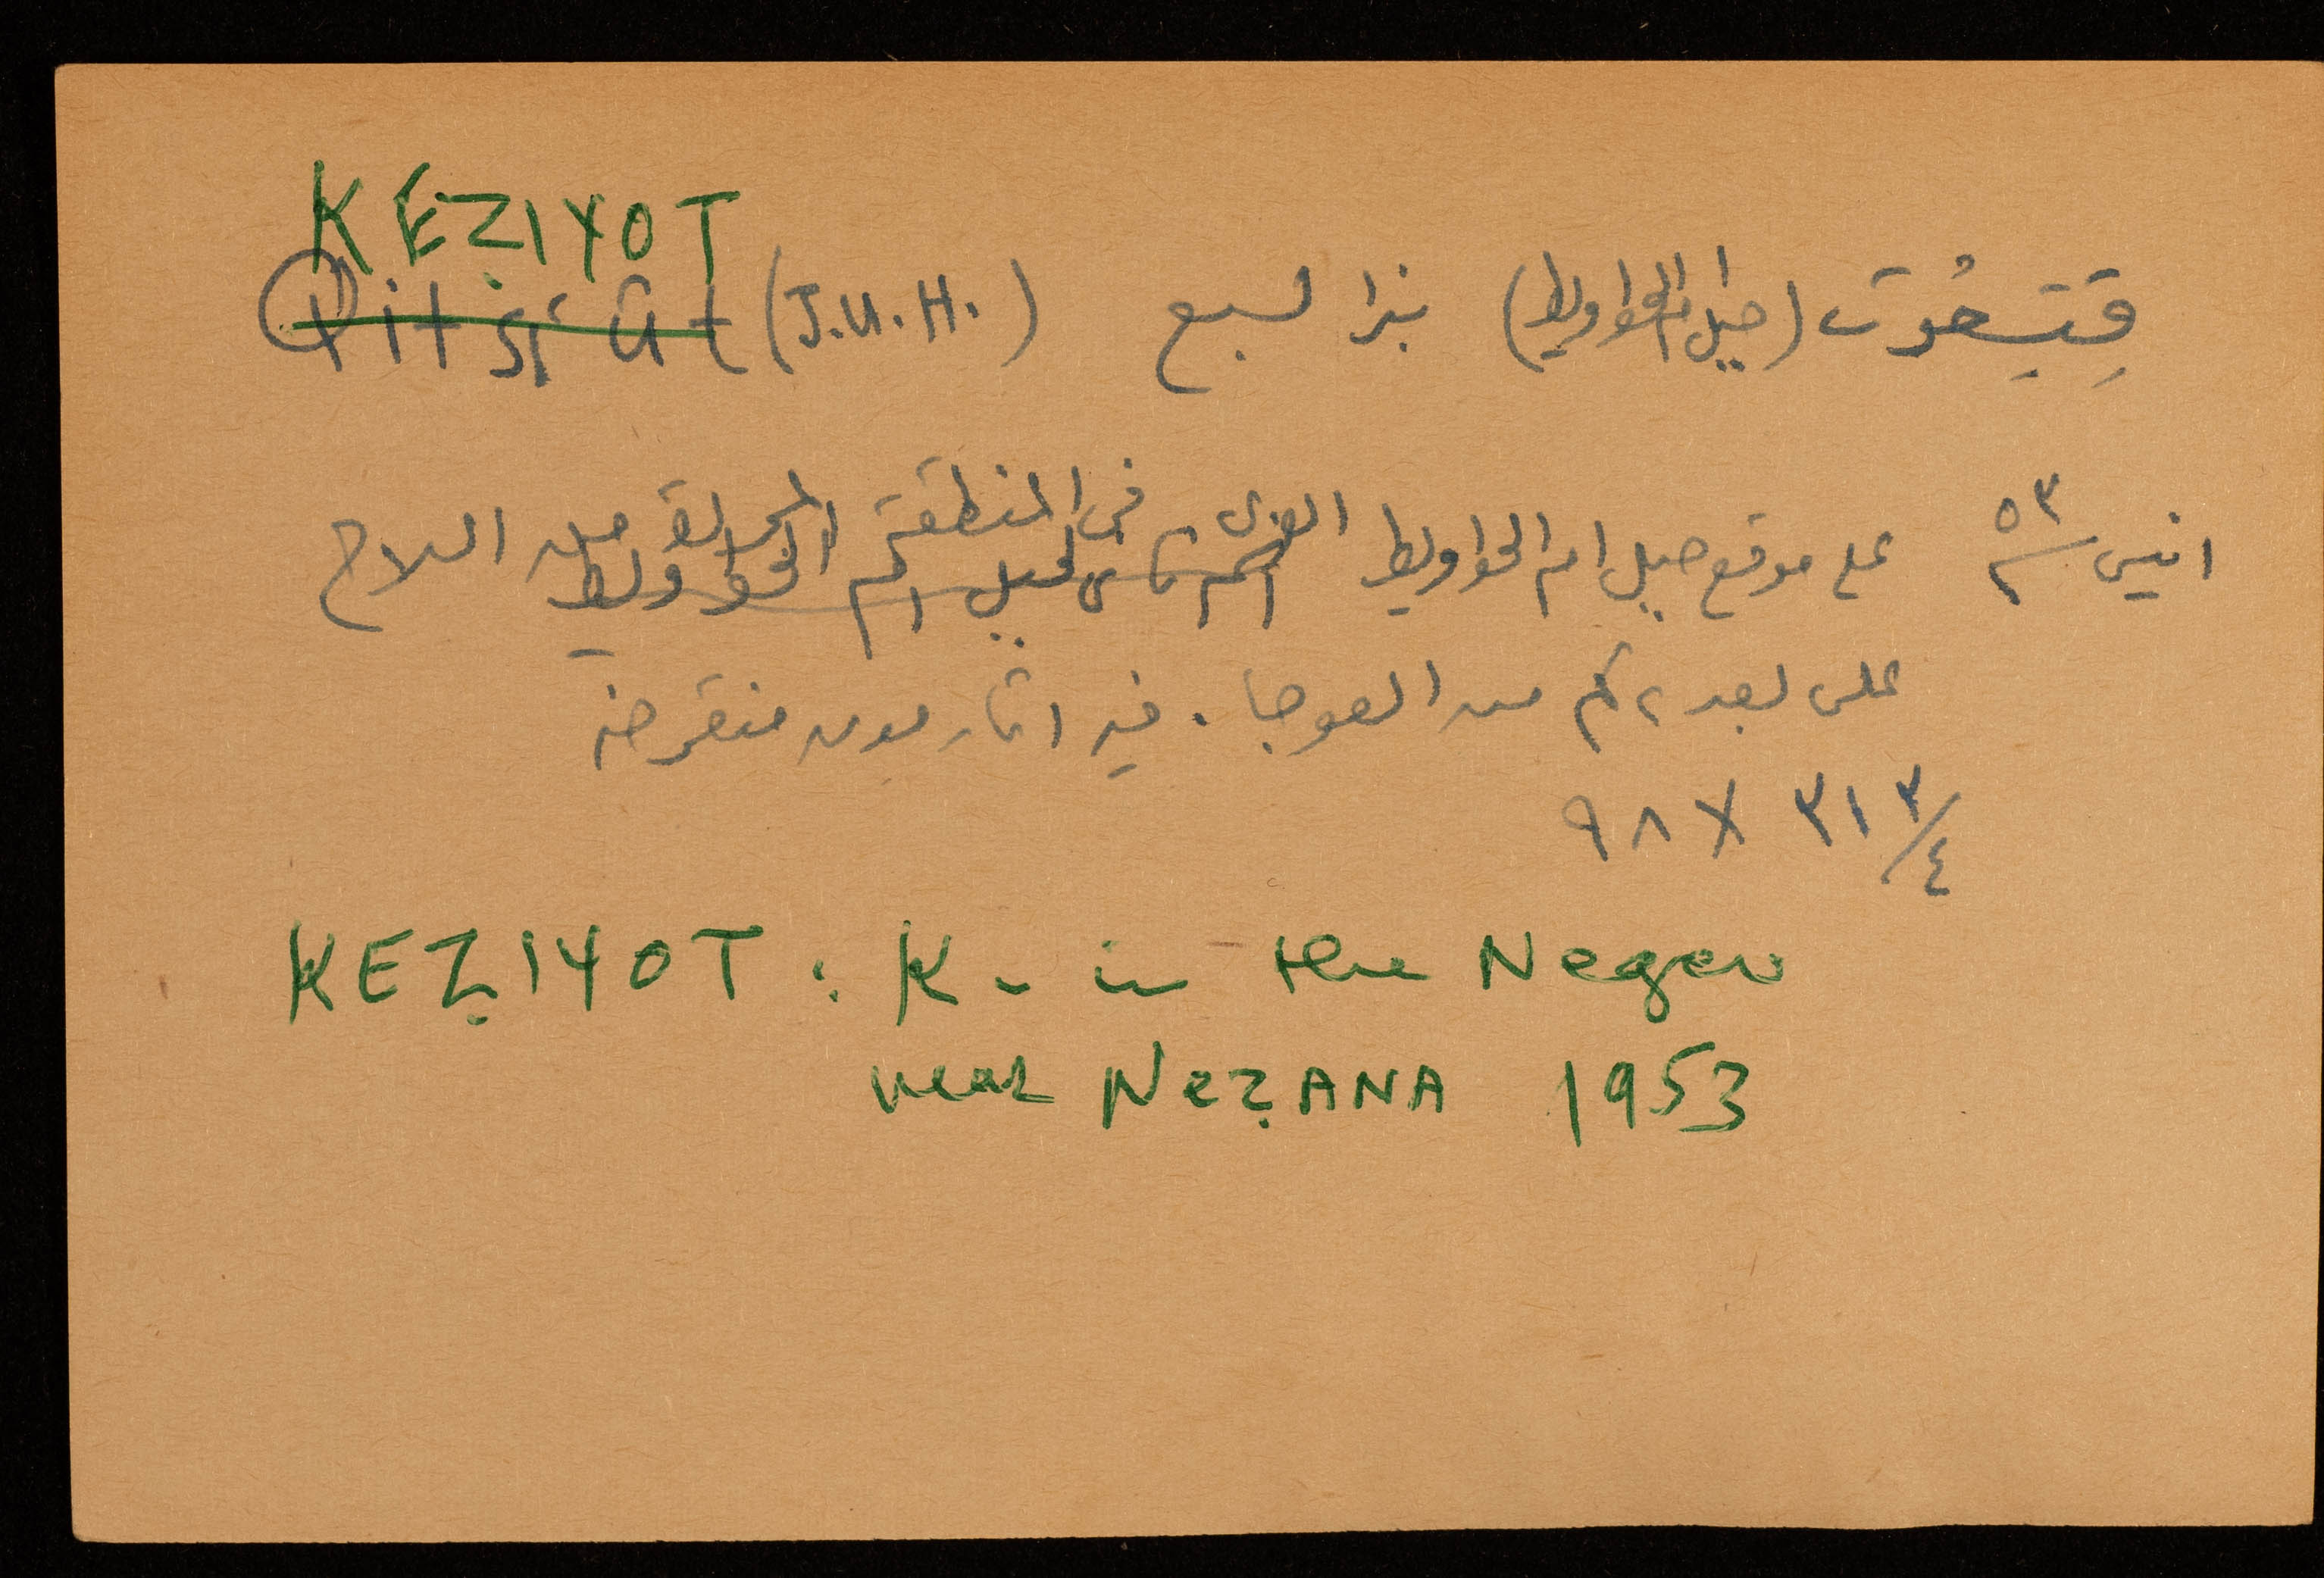 KEẒIYOT
قِتِسعُوت (جبل ام الحواويط) بئر السبع (J.U.H.)
انيس ٥٣ على موقع جبل ام الحواويط الذي في المنطقة المجردة من السلاح
على بعد ٢ كم من العوجا . فيه اثار مدن منقرضة
٩٨ X ٣١ ٣/٤
KEẒIYOT : K. in the Negev
near NeẒANA 1953